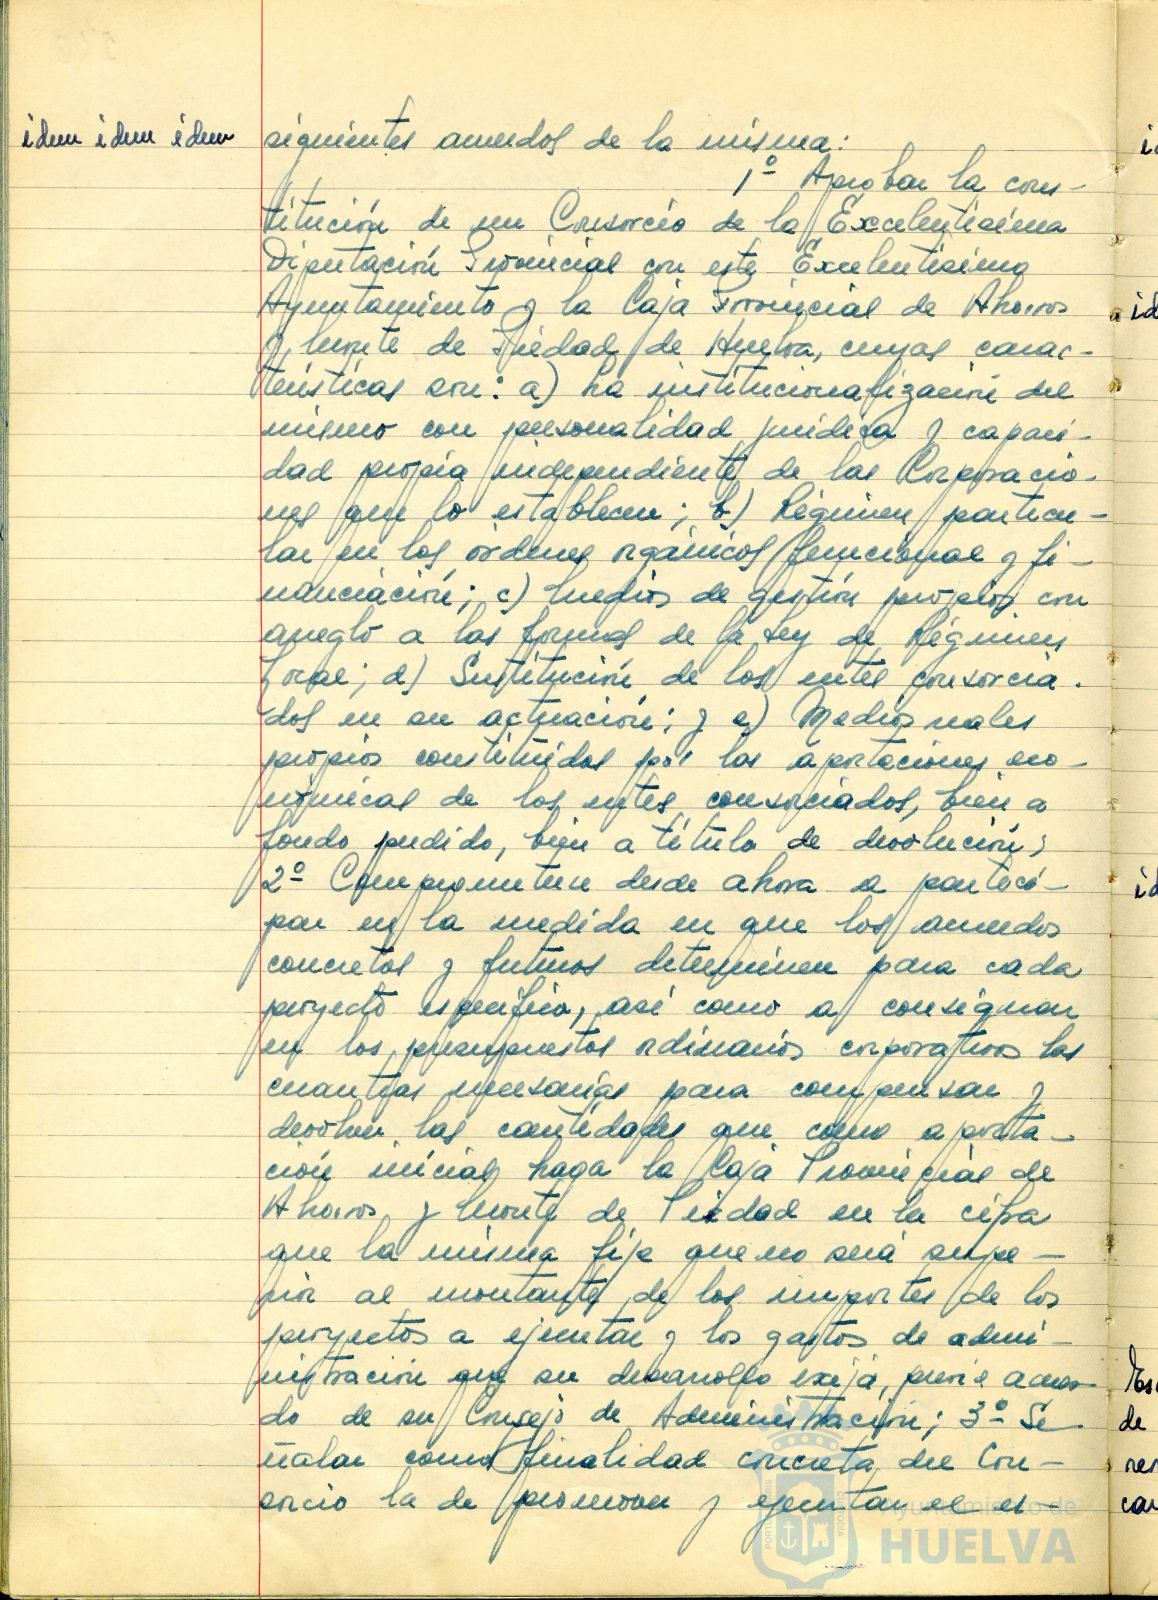 idem idem idem
siguientes acuerdos de la misma:
1º Aprobar la cons-
titución de un Consorcio de la Excelentísima
Diputación Provincial con este Excelentísimo
Ayuntamiento y la Caja Provincial de Ahorros
y Monte de Piedad de Huelva, cuyas carac-
terísticas son: a) La institucionalización del
mismo con personalidad jurídica y capaci-
dad propia independiente de las Corporacio-
nes que lo establecen; b) Régimen particu-
lar en los órdenes orgánicos funcional y fi-
nanciación; c) Medios de gestión propios con
arreglo a las formas de la Ley de Régimen
Local; d) Sustitución de los entes consorcia-
dos en su actuación; y e) Medios reales
propios constituidos por las aportaciones eco-
nómicas de los entes consorciados, bien a
fondo perdido, bien a título de devolución;
2º Comprometerse desde ahora a partici-
par en la medida en que los acuerdos
concretos y futuros determinen para cada
proyecto específico, así como a consignar
en los presupuestos ordinarios corporativos las
cuantías necesarias para compensar y
devolver las cantidades que como aporta-
ción inicial haga la Caja Provincial de
Ahorros y Monte de Piedad en la cifra
que la misma fije que no será supe-
rior al montante de los importes de los
proyectos a ejecutar y los gastos de admi-
nistración que su desarrollo exija, previo acuer-
do de su Consejo de Administración; 3º Se-
ñalar como finalidad concreta del Con-
sorcio la de promover y ejecutar el es-
Ayuntamiento de
HUELVA